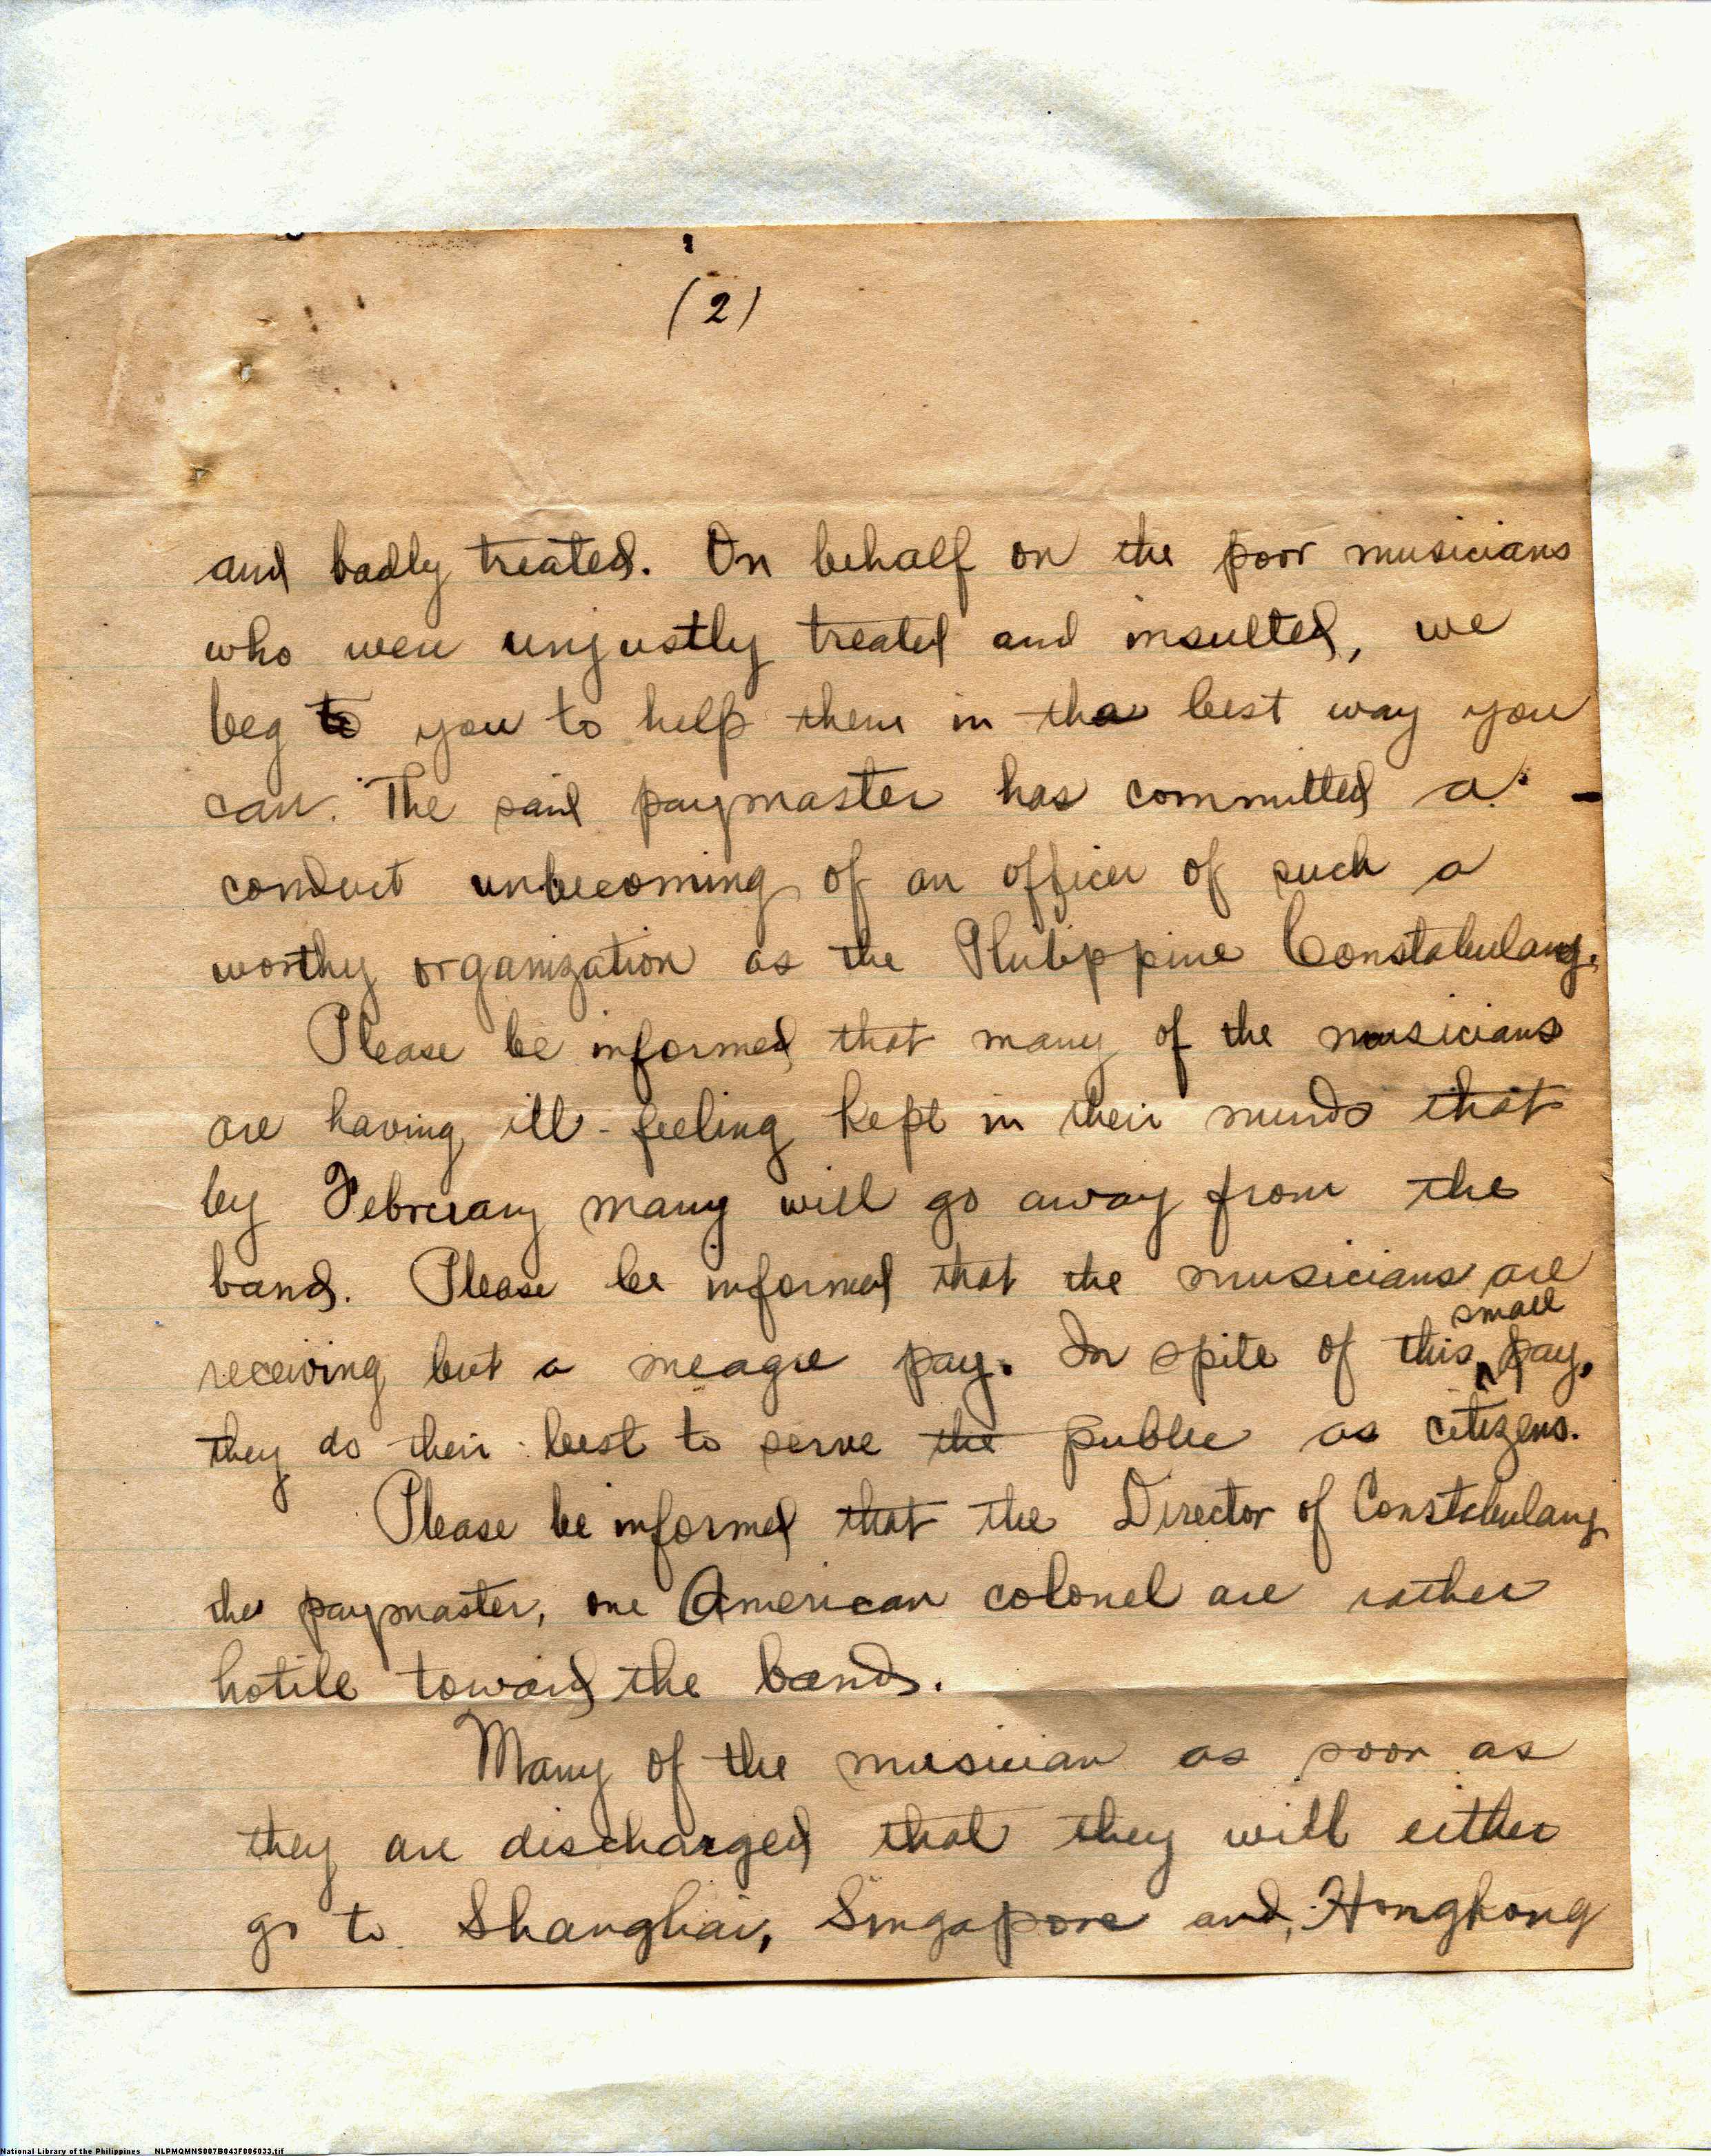 (2)
and badly treated. On behalf on the poor musicians
who were unjustly treated and insulted, we
beg to you to help them in the best way you
can. The said paymaster has committed a
conduct unbecoming of an officer of such a
worthy organization as the Philippine Constabulary.
Please be informed that many of the musicians
are having ill-feeling kept in their minds that
by February many will go away from the
band. Please be informed that the musicians are
small
receiving but a meagre pay. In spite of this pay,
they do their best to serve the public as citizens.
Please be informed that the Director of Constabulary
the paymaster, one American colonel are rather
hotile toward the bands.
Many of the musician as soon as
they are discharged that they will either
go to Shanghai, Singapore and, Hongkong
National Library of the Philippines NLPMQMNS007B043F005033.tif